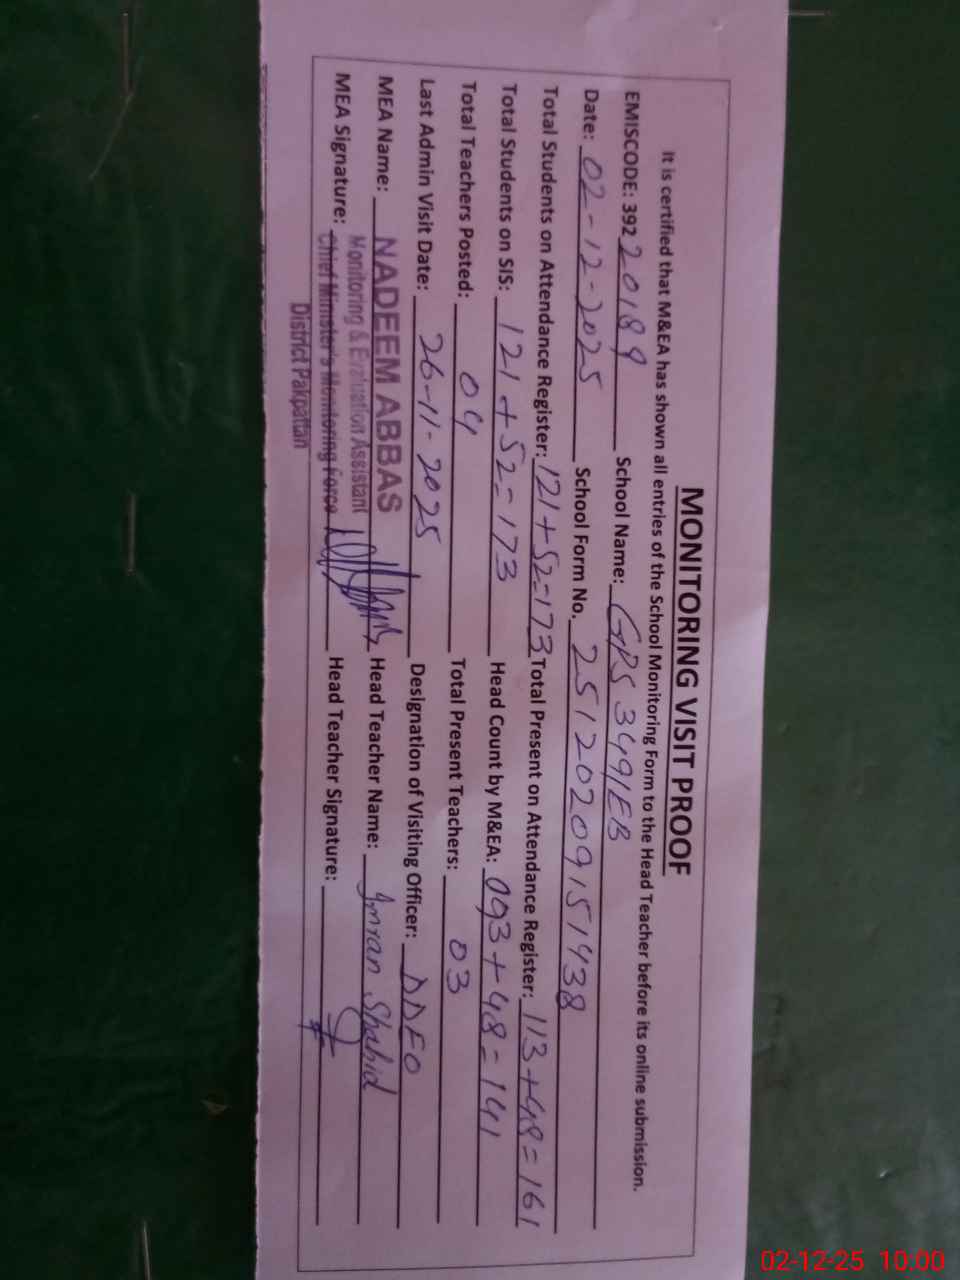 MONITORING VISIT PROOF
It is certified that M&EA has shown all entries of the School Monitoring Form to the Head Teacher before its online submission.
EMISCODE: 39220189 School Name: GPS 3491EB
Date: 02-12-2025 School Form No. 25120209151438
Total Students on Attendance Register: 121+52=173 Total Present on Attendance Register: 113+48=161
Total Students on SIS: 121+52=173 Head Count by M&EA: 093+48=141
Total Teachers Posted: 04 Total Present Teachers: 03
Last Admin Visit Date: 26-11-2025 Designation of Visiting Officer: DDEO
MEA Name: NADEEM ABBAS Head Teacher Name: Imran Shahid
Monitoring & Evaluation Assistant
MEA Signature: Chief Minister's Monitoring Force Head Teacher Signature:
District Pakpattan
02-12-25 10:00